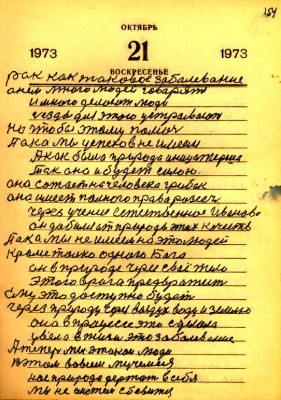 154
ОКТЯБРЬ
1973 21 1973
ВОСКРЕСЕНЬЕ
рак как таковое заболевание
о нем много людей говорят
и много делают люди
съезды для этого устраивают
Но чтобы этому помоч
Пока мы успехов не имеем
А как была природа инициатерша
Так она и будет силою.
она сотает на человека грибок
она имеет полного права рассеч
через учение естественное Иванова
он добился от природы этих качеств
Пока мы не имеем на это людей
Кроме только одного Бога
он в природе через своё тело
Этого врага предвратит
Ему это доступно будет
через природу через воздух воду и землю
она в процессе это сделала
увела в жизни это заболевание
А теперь мы этакои люди
В этом вовсем мучемся
нас природа держат в себя
мы не смогем с бовитц